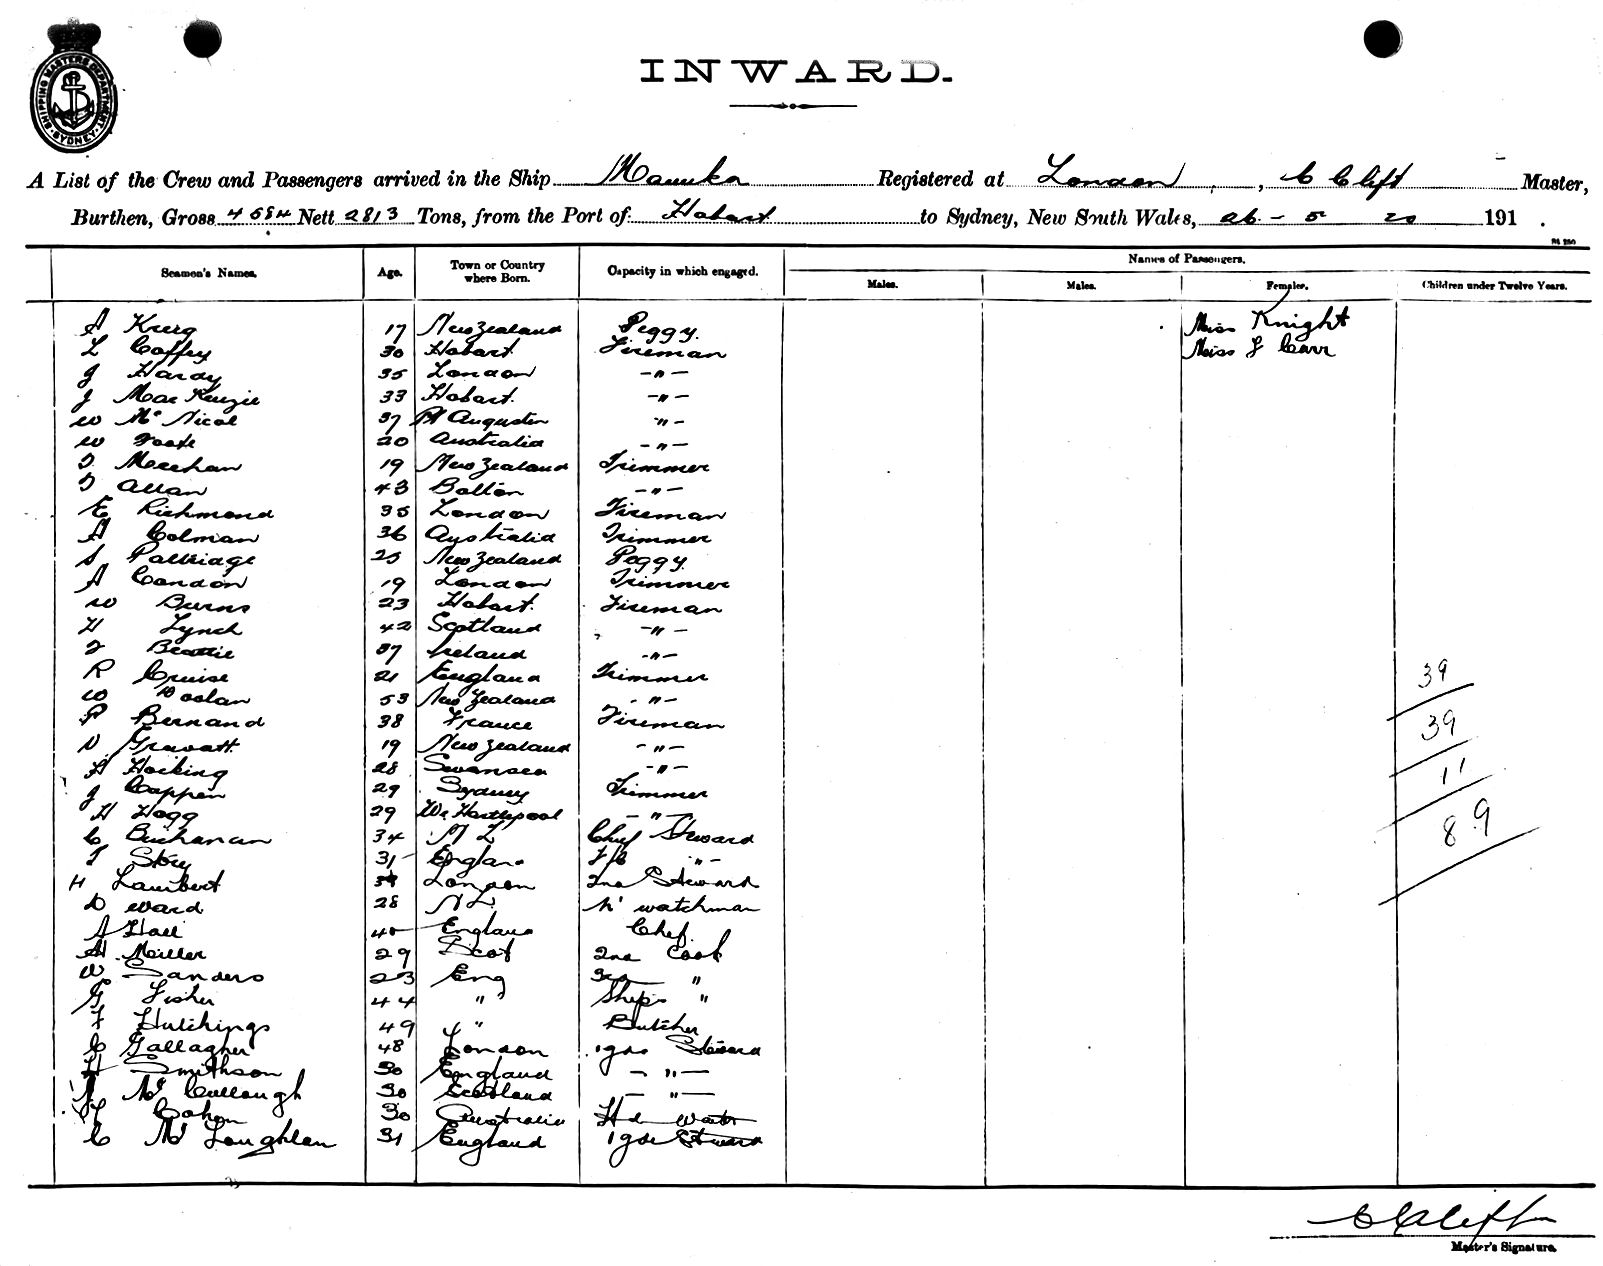 SHIPPING MASTERS DEPARTMENT SYDNEY
INWARD.
A List of the Crew and Passengers arrived in the Ship Manuka Registered at London, , C Clift Master,
Burthen, Gross 4584 Nett 2813 Tons, from the Port of Hobart to Sydney, New South Wales, 26 - 5 20 191 .
Seamen's Names. Age. Town or Country where Born. Capacity in which engaged. Names of Passengers.
Males. Males. Females. Children under Twelve Years.
A Krerg 17 New Zealand Peggy. Miss Knight
L Coffey 30 Hobart Fireman Miss J Carr
J Hardy 35 London -"-
J MacKenzie 33 Hobart. -"-
W McNicol 37 Pt Augusta "-
W Foote 20 Australia -"-
T Meehan 19 New Zealand Trimmer
T Allan 43 Bolton -"-
E Richmond 35 London Fireman
A Colman 36 Australia Trimmer
S Pattridge 25 New Zealand Peggy
A Condon 19 London Trimmer
W Burns 23 Hobart. Fireman
H Lynch 42 Scotland -"-
Beattie 37 Ireland -"-
R Cruise 21 England Trimmer
W Doolan 53 New Zealand -"-
P Bernand 38 France Fireman
N Gravatt 19 New Zealand -"-
H Hocking 28 Swansea -"-
J Cappen 29 Sydney Trimmer
H Hogg 29 We Hartlepool -"-
C Buchanan 34 N Z Chief Steward
Story 31 England "-
H Lambert London 2nd Steward
D Ward 28 N Z N' watchman
A Hall 40 England Chef
H. Miller 29 Scot 2nd Cook
W Sanders 23 Eng 3rd "
G Fisher 44 " Ships "
F Hutchings 49 " Butcher
C Gallagher 48 London 1 gde Steward
H Smithson 30 England -"-
A McCullough 30 Scotland -"-
Cohen 30 Australia Hd Waitr
C McLoughlan 31 England 1 gde Steward
39
39
11
89
C Clift
Master's Signature.